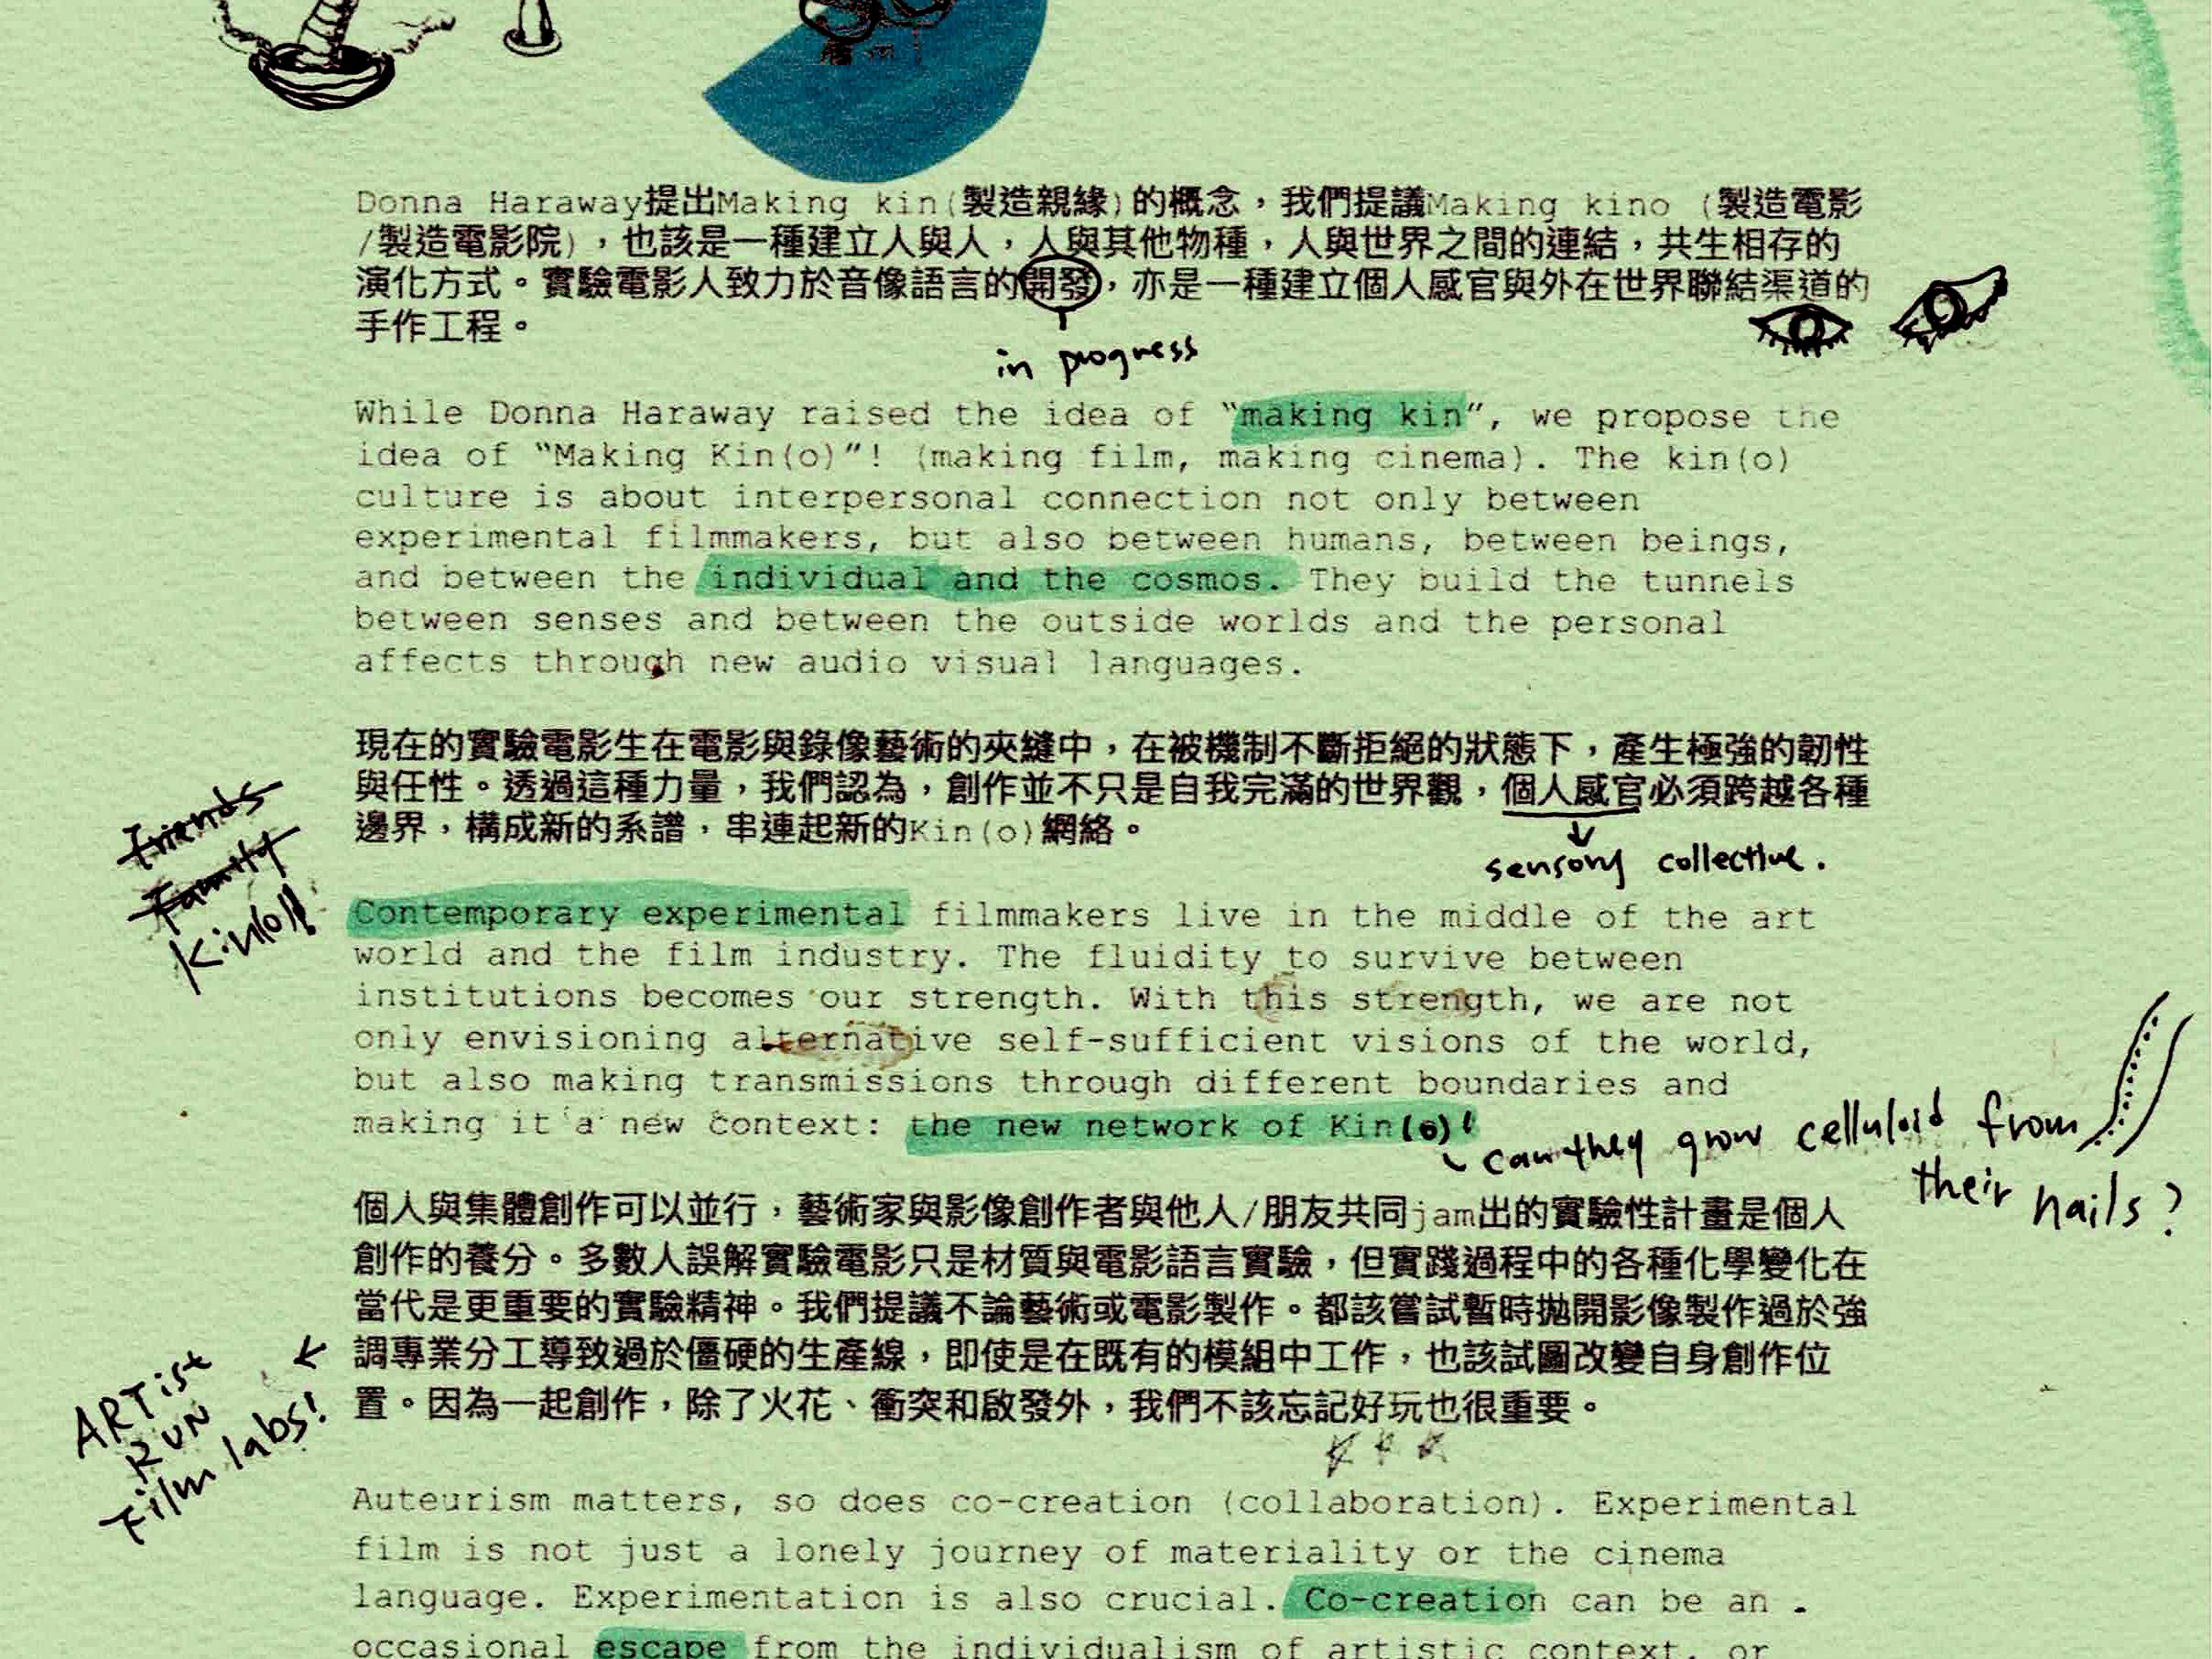 Donna Haraway提出Making kin(製造親緣)的概念，我們提議Making kino (製造電影
/製造電影院)，也該是一種建立人與人，人與其他物種，人與世界之間的連結，共生相存的
演化方式。實驗電影人致力於音像語言的開發，亦是一種建立個人感官與外在世界聯結渠道的
手作工程。
in progress
While Donna Haraway raised the idea of “making kin”, we propose the
idea of “Making Kin(o)”! (making film, making cinema). The kin(o)
culture is about interpersonal connection not only between
experimental filmmakers, but also between humans, between beings,
and between the individual and the cosmos. They build the tunnels
between senses and between the outside worlds and the personal
affects through new audio visual languages.
現在的實驗電影生在電影與錄像藝術的夾縫中，在被機制不斷拒絕的狀態下，產生極強的韌性
與任性。透過這種力量，我們認為，創作並不只是自我完滿的世界觀，個人感官必須跨越各種
邊界，構成新的系譜，串連起新的Kin(o)網絡。
sensory collective.
Friends
Family
Kin(o)!
Contemporary experimental filmmakers live in the middle of the art
world and the film industry. The fluidity to survive between
institutions becomes our strength. With this strength, we are not
only envisioning alternative self-sufficient visions of the world,
but also making transmissions through different boundaries and
making it a new context: the new network of Kin(o)!
can they grow celluloid from
their nails?
個人與集體創作可以並行，藝術家與影像創作者與他人/朋友共同jam出的實驗性計畫是個人
創作的養分。多數人誤解實驗電影只是材質與電影語言實驗，但實踐過程中的各種化學變化在
當代是更重要的實驗精神。我們提議不論藝術或電影製作。都該嘗試暫時拋開影像製作過於強
調專業分工導致過於僵硬的生產線，即使是在既有的模組中工作，也該試圖改變自身創作位
置。因為一起創作，除了火花、衝突和啟發外，我們不該忘記好玩也很重要。
ARTist
RUN
Film labs!
Auteurism matters, so does co-creation (collaboration). Experimental
film is not just a lonely journey of materiality or the cinema
language. Experimentation is also crucial. Co-creation can be an
occasional escape from the individualism of artistic context, or